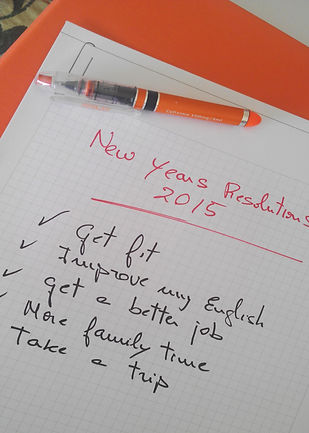 New Years Resolutions
2015
✓ Get fit
✓ Improve my English
✓ Get a better job
✓ More family time
Take a trip